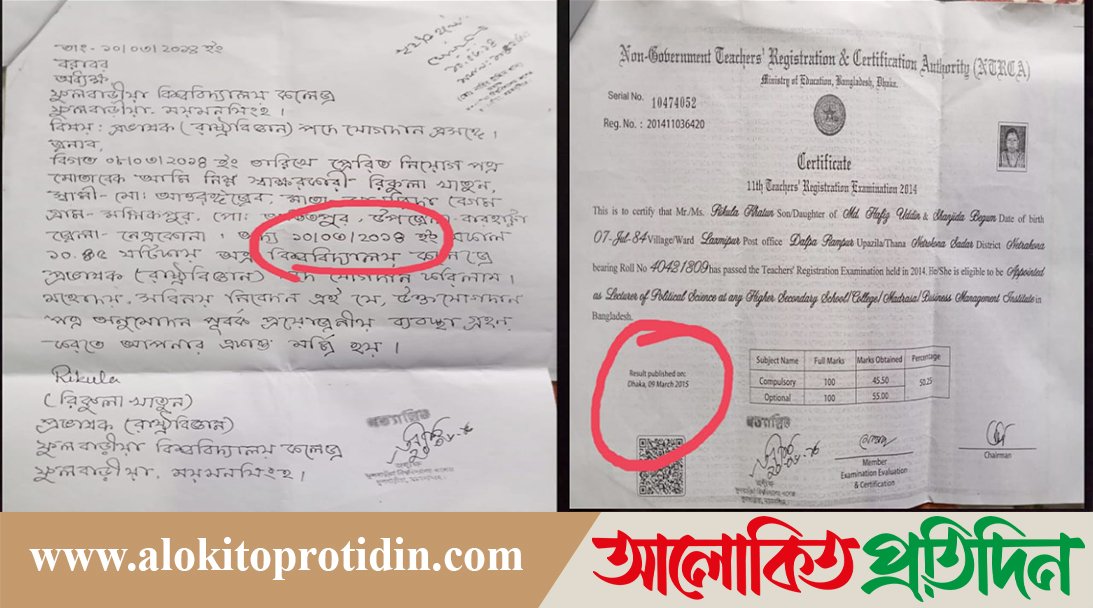 তাং- ১০/০৩/২০১৪ ইং
বরাবর
অধ্যক্ষ
ফুলবাড়ীয়া বিশ্ববিদ্যালয় কলেজ
ফুলবাড়ীয়া- ময়মনসিংহ।
বিষয়: প্রভাষক (রাষ্ট্রবিজ্ঞান) পদে যোগদান প্রসঙ্গে।
জনাব,
বিগত ০৮/০৩/২০১৪ ইং তারিখে প্রেরিত নিয়োগ পত্র
মোতাবেক আমি নিম্ন স্বাক্ষরকারী- রিকুলা খাতুন,
স্বামী- মো: মাতা- বেগম
গ্রাম- পো: উপজেলা- বারহাট্টা
জেলা- নেত্রকোনা। অদ্য ১০/০৩/২০১৪ ইং সকাল
১০.৪৫ ঘটিকায় অত্র বিশ্ববিদ্যালয় কলেজে
প্রভাষক (রাষ্ট্রবিজ্ঞান) পদে যোগদান করিলাম।
মহোদয়, সবিনয় নিবেদন এই যে, উক্ত যোগদান
পত্র অনুমোদন পূর্বক প্রয়োজনীয় ব্যবস্থা গ্রহন
করতে আপনার একান্ত মর্জি হয়।
Rikula
(রিকুলা খাতুন)
প্রভাষক (রাষ্ট্রবিজ্ঞান)
ফুলবাড়ীয়া বিশ্ববিদ্যালয় কলেজ
ফুলবাড়ীয়া, ময়মনসিংহ।
সত্যায়িত
অধ্যক্ষ
Non-Government Teachers' Registration & Certification Authority (NTRCA)
Ministry of Education, Bangladesh, Dhaka.
Serial No. 10474052
Reg. No. : 201411036420
Certificate
11th Teachers' Registration Examination 2014
This is to certify that Mr./Ms. Rikula Khatun Son/Daughter of Md Hafiz Uddin & Shanjida Begum Date of birth
07-Jul-84 Village/Ward Laxmipur Post office Dalpa Rampur Upazila/Thana Netrokona Sadar District Netrakona
bearing Roll No 40421309 has passed the Teachers' Registration Examination held in 2014. He/She is eligible to be Appointed
as Lecturer of Political Science at any Higher Secondary School/College/Madrasa/Business Management Institute in
Bangladesh.
Result published on:
Dhaka, 09 March 2015
Subject Name Full Marks Marks Obtained Percentage
Compulsory 100 45.50 50.25
Optional 100 55.00
সত্যায়িত
অধ্যক্ষ
Member
Examination Evaluation
& Certification
Chairman
www.alokitoprotidin.com
আলোকিত প্রতিদিন